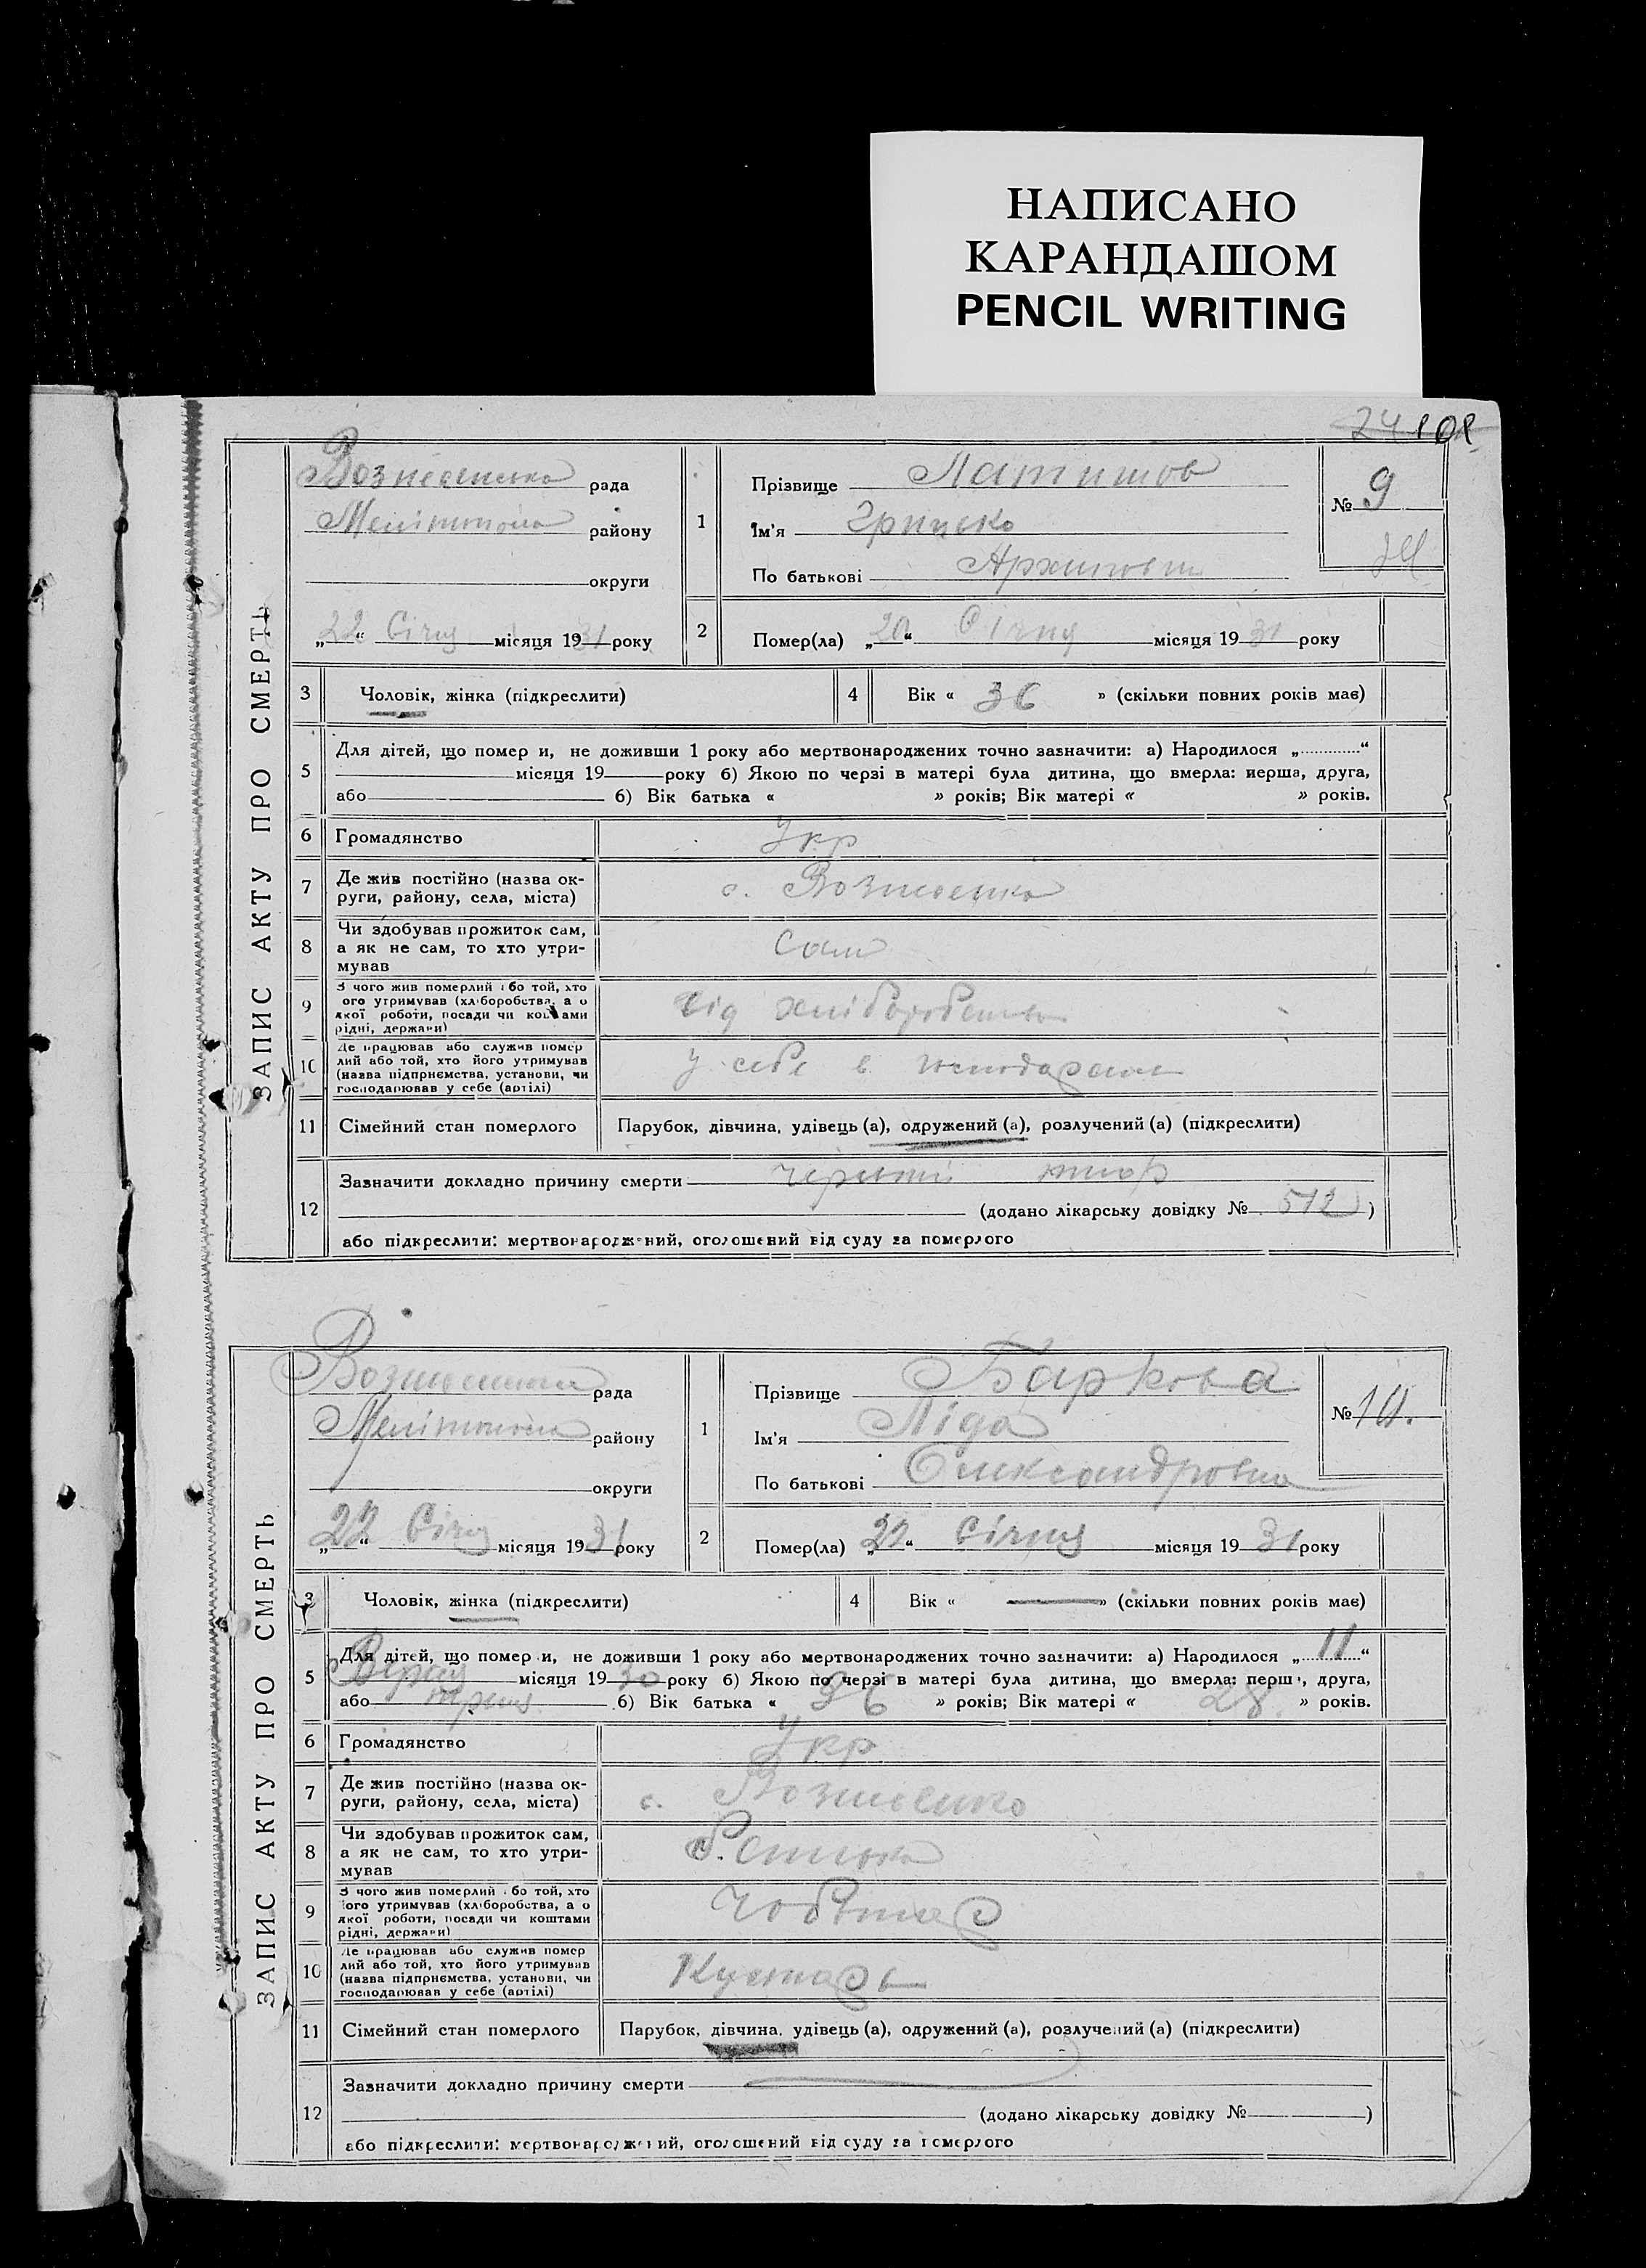 НАПИСАНО
КАРАНДАШОМ
PENCIL WRITING
24 101
ЗАПИС АКТУ ПРО СМЕРТЬ
Вознесенська рада
району
округи
„22“ Січня місяця 1931 року
1
Прізвище Латишов
Ім'я Грицько
По батькові
№ 9
2
Помер(ла) „20“ Січня місяця 1931 року
3 Чоловік, жінка (підкреслити)
4 Вік « 36 » (скільки повних років має)
5
Для дітей, що помер и, не доживши 1 року або мертвонароджених точно зазначити: а) Народилося „ “
місяця 19 року б) Якою по черзі в матері була дитина, що вмерла: перша, друга,
або б) Вік батька « » років; Вік матері « » років.
6 Громадянство Укр
7 Де жив постійно (назва ок-
руги, району, села, міста) с. Вознесенка
8 Чи здобував прожиток сам,
а як не сам, то хто утри-
мував Сам
9 З чого жив померлий або той, хто
ого утримував (хліборобства, а о
якої роботи, посади чи коштами
рідні, держави) від хліборобства
10 Де працював або служив помер
лий або той, хто його утримував
(назва підприємства, установи, чи
господарював у себе (артілі) у себе в господарстві
11 Сімейний стан померлого Парубок, дівчина, удівець (а), одружений (а), розлучений (а) (підкреслити)
12
Зазначити докладно причину смерти
(додано лікарську довідку № 512)
або підкреслити: мертвонароджений, оголошений від суду за померлого
ЗАПИС АКТУ ПРО СМЕРТЬ
Вознесенська рада
району
округи
„22“ Січня місяця 1931 року
1
Прізвище Баркова
Ім'я Ліда
По батькові Олександровна
№ 10.
2
Помер(ла) „22“ Січня місяця 1931 року
3 Чоловік, жінка (підкреслити)
4 Вік « — » (скільки повних років має)
5
Для дітей, що помер и, не доживши 1 року або мертвонароджених точно зазначити: а) Народилося „11“
місяця 1930 року б) Якою по черзі в матері була дитина, що вмерла: перш , друга,
або б) Вік батька « 36 » років; Вік матері « 28 » років.
6 Громадянство Укр
7 Де жив постійно (назва ок-
руги, району, села, міста) с. Вознесенка
8 Чи здобував прожиток сам,
а як не сам, то хто утри-
мував
9 З чого жив померлий або той, хто
його утримував (хліборобства, а о
якої роботи, посади чи коштами
рідні, держави) Чоботар
10 Де працював або служив помер
лий або той, хто його утримував
(назва підприємства, установи, чи
господарював у себе (артілі) Кустарь
11 Сімейний стан померлого Парубок, дівчина, удівець (а), одружений (а), розлучений (а) (підкреслити)
12
Зазначити докладно причину смерти
(додано лікарську довідку № )
або підкреслити: мертвонароджений, оголошений від суду за померлого